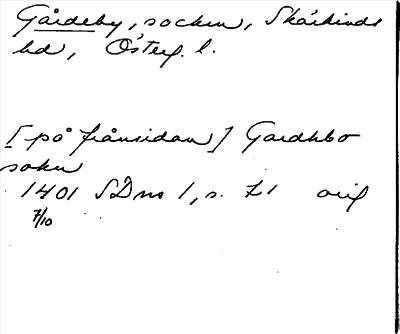 Gårdeby, socken, Skärkinds
hd, Österg. l.
[på frånsidan] Gardhbo
sokn
1401 SDns 1, s. 21 orig
7/10